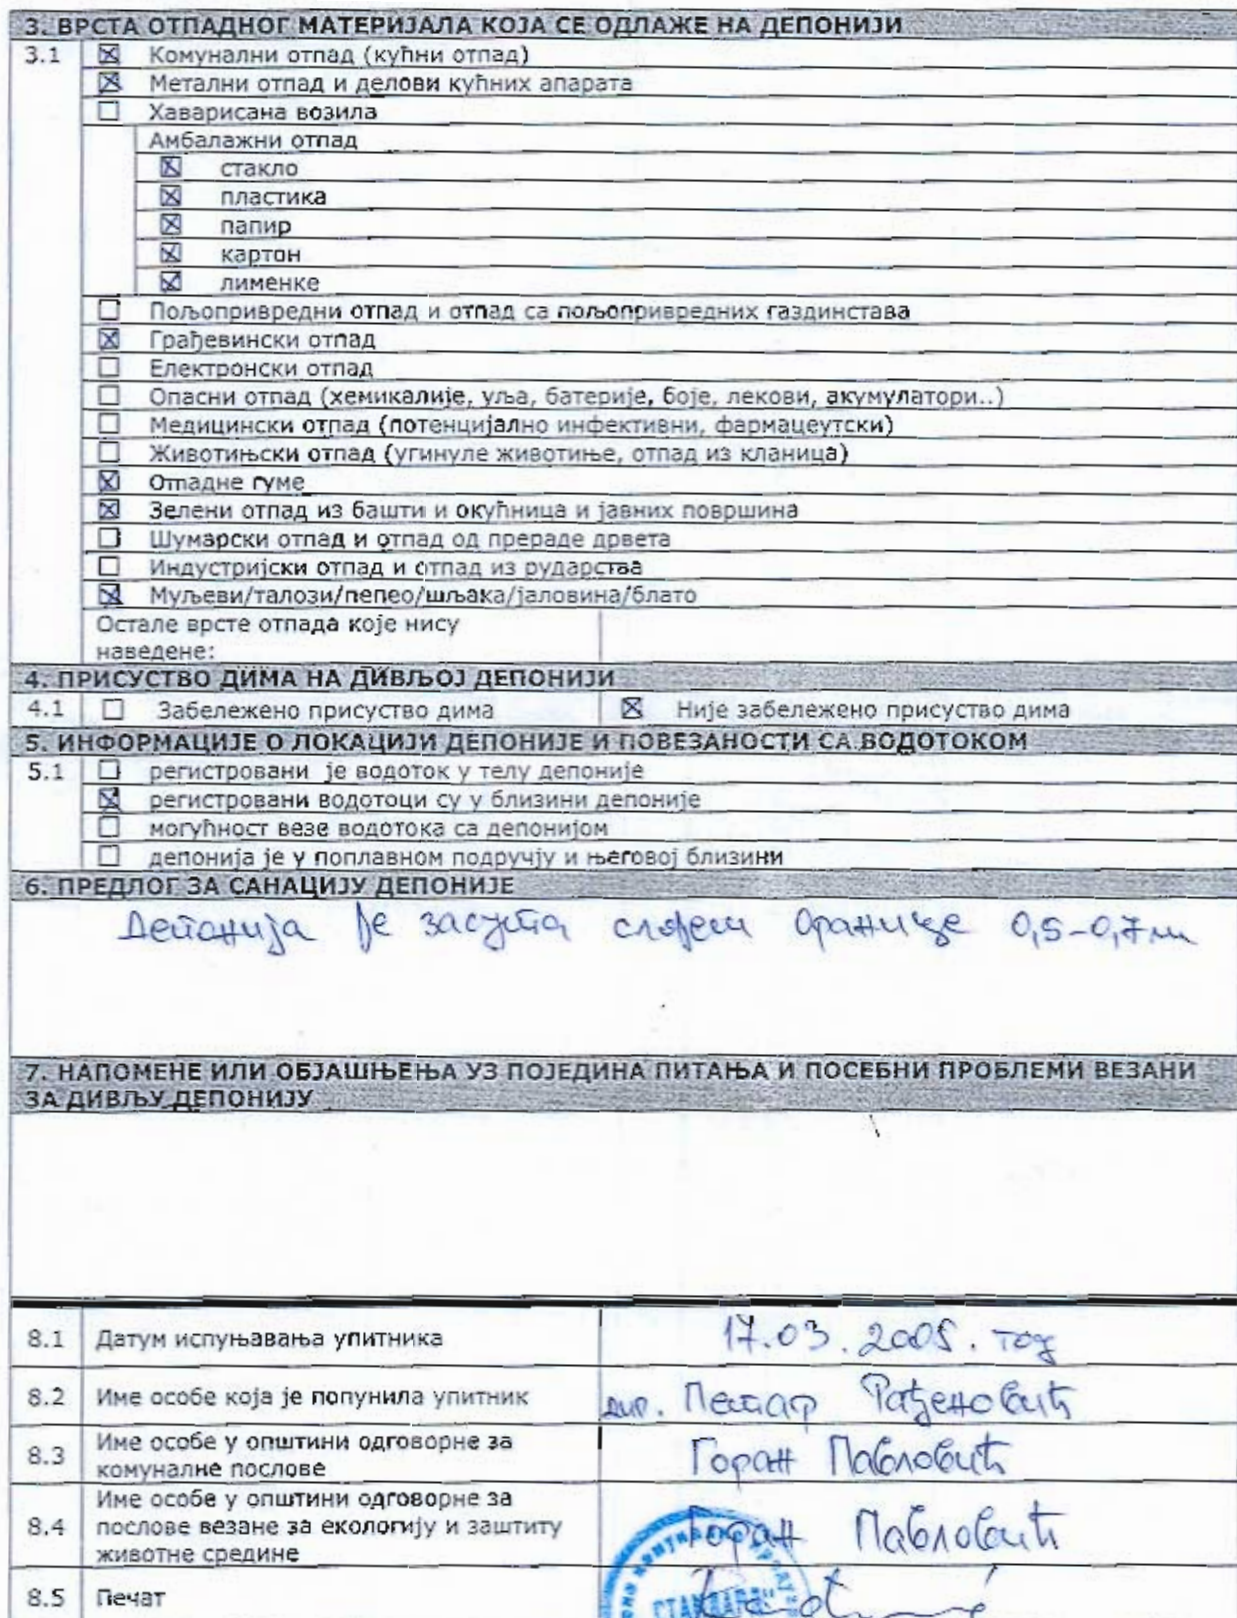 3. ВРСТА ОТПАДНОГ МАТЕРИЈАЛА КОЈА СЕ ОДЛАЖЕ НА ДЕПОНИЈИ
3.1 ☒ Комунални отпад (кућни отпад)
☒ Метални отпад и делови кућних апарата
☐ Хаварисана возила
Амбалажни отпад
☒ стакло
☒ пластика
☒ папир
☒ картон
☒ лименке
☐ Пољопривредни отпад и отпад са пољопривредних газдинстава
☒ Грађевински отпад
☐ Електронски отпад
☐ Опасни отпад (хемикалије, уља, батерије, боје, лекови, акумулатори..)
☐ Медицински отпад (потенцијално инфективни, фармацеутски)
☐ Животињски отпад (угинуле животиње, отпад из кланица)
☒ Отпадне гуме
☒ Зелени отпад из башти и окућница и јавних површина
☐ Шумарски отпад и отпад од прераде дрвета
☐ Индустријски отпад и отпад из рударства
☒ Муљеви/талози/пепео/шљака/јаловина/блато
Остале врсте отпада које нису
наведене:
4. ПРИСУСТВО ДИМА НА ДИВЉОЈ ДЕПОНИЈИ
4.1 ☐ Забележено присуство дима ☒ Није забележено присуство дима
5. ИНФОРМАЦИЈЕ О ЛОКАЦИЈИ ДЕПОНИЈЕ И ПОВЕЗАНОСТИ СА ВОДОТОКОМ
5.1 ☐ регистровани је водоток у телу депоније
☒ регистровани водотоци су у близини депоније
☐ могућност везе водотока са депонијом
☐ депонија је у поплавном подручју и његовој близини
6. ПРЕДЛОГ ЗА САНАЦИЈУ ДЕПОНИЈЕ
Депонија је засута слојем оранице 0,5-0,7 м
7. НАПОМЕНЕ ИЛИ ОБЈАШЊЕЊА УЗ ПОЈЕДИНА ПИТАЊА И ПОСЕБНИ ПРОБЛЕМИ ВЕЗАНИ
ЗА ДИВЉУ ДЕПОНИЈУ
8.1 Датум испуњавања упитника 17.03.2005. год
8.2 Име особе која је попунила упитник дир. Петар Рађеновић
8.3 Име особе у општини одговорне за
комуналне послове Горан Павловић
8.4 Име особе у општини одговорне за
послове везане за екологију и заштиту
животне средине Горан Павловић
8.5 Печат
СТАНДАРД"